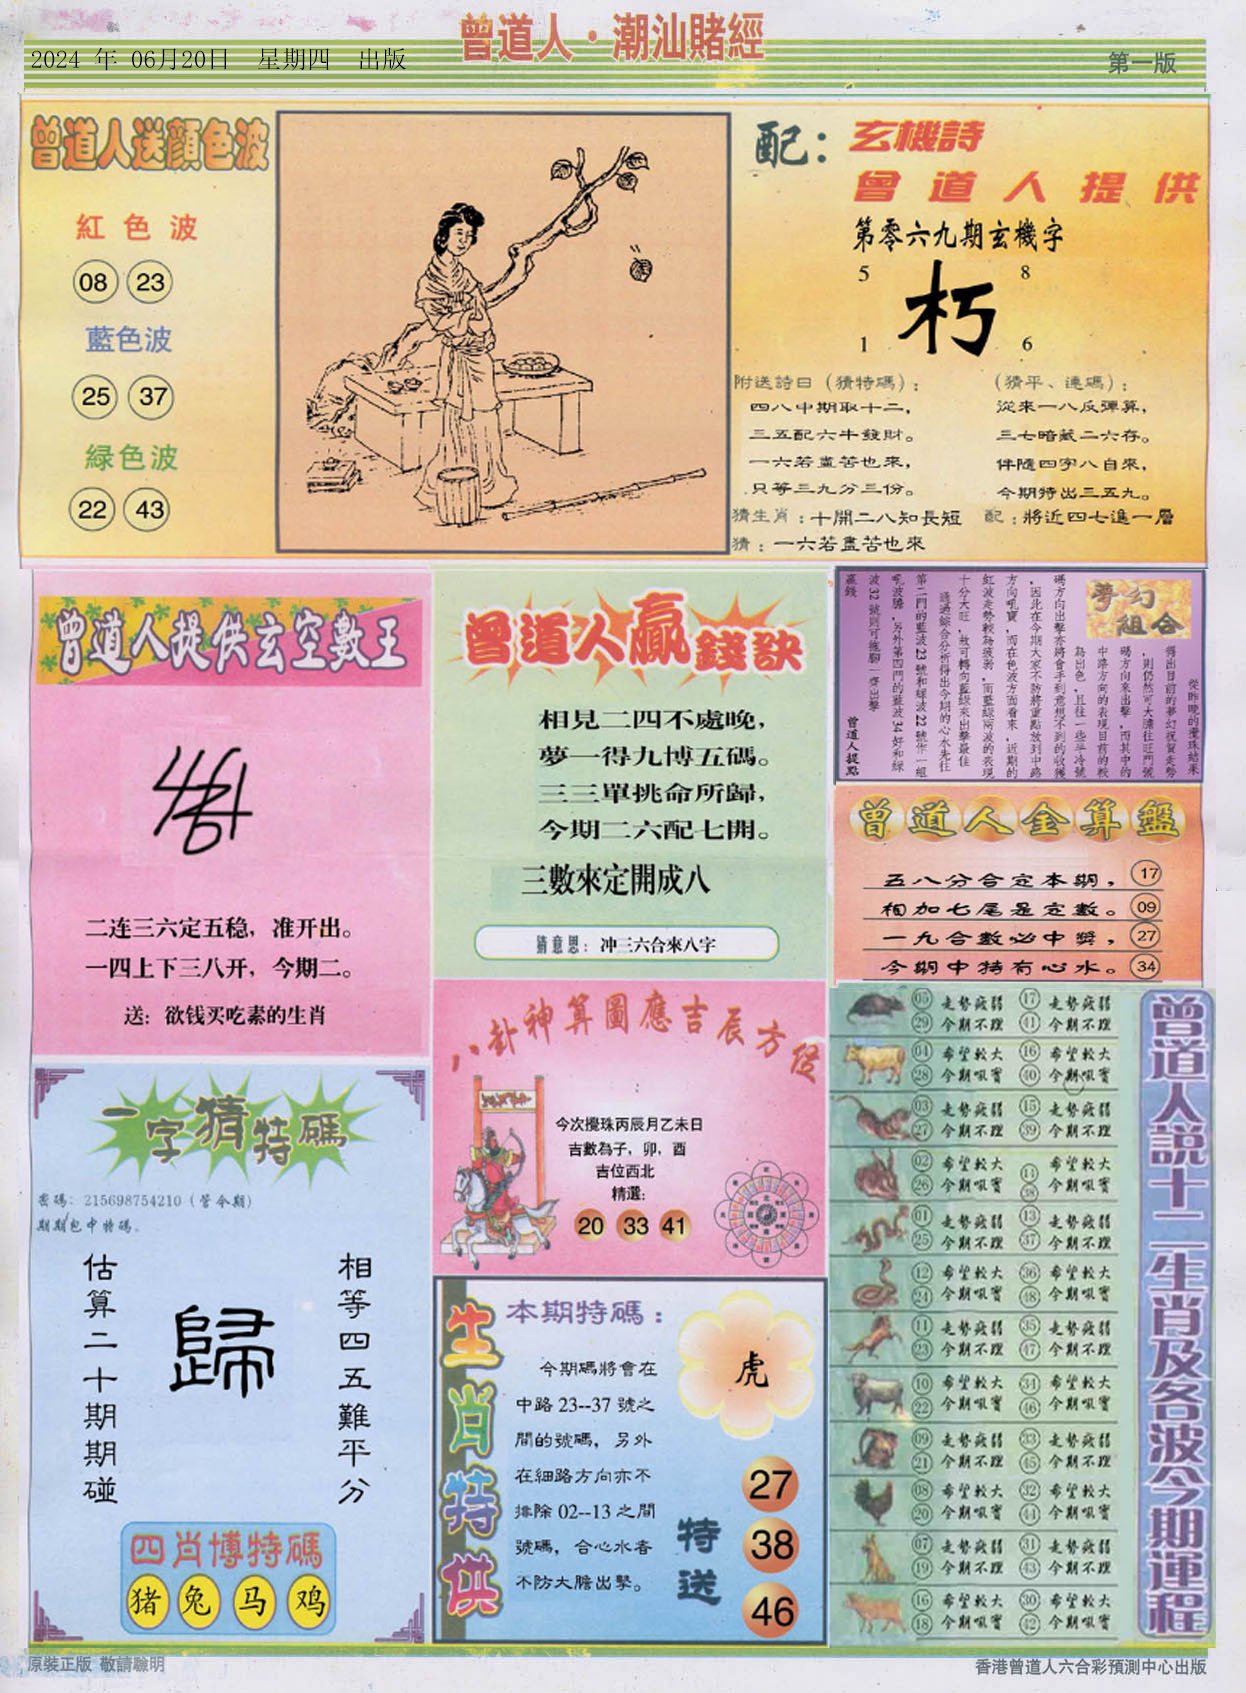 曾道人·潮汕賭經
2024 年 06月20日 星期四 出版
第一版
曾道人送顔色波
紅色波
08 23
藍色波
25 37
緑色波
22 43
配：玄機詩
曾道人提供
第零六九期玄機字
5 8
朽
1 6
附送詩曰（猜特碼）：
四八中期取十二，
三五配六牛發財。
一六若盡苦也來，
只等三九分三份。
（猜平、連碼）：
從來一八反彈算，
三七暗藏二六存。
伴隨四字八自來，
今期特出三五九。
猜生肖：十開二八知長短 配：將近四七進一層
猜：一六若盡苦也來
曾道人提供玄空數王
二连三六定五稳，准开出。
一四上下三八开，今期二。
送：欲钱买吃素的生肖
曾道人贏錢訣
相見二四不處晚，
夢一得九博五碼。
三三單挑命所歸，
今期二六配七開。
三數來定開成八
猜意思：冲三六合來八字
夢幻組合
從昨晚的攪珠結果
得出目前的夢幻祝賀走勢
，則仍然可大膽往旺門號
碼方向來出擊，而其中的
中路方向的表現目前的較
為出色，且往一些平冷號
碼方向出擊亦將會手到意想不到的收獲
，因此在今期大家不防將重點放到中路
方向吼寶，而在色波方面看來，近期的
紅波走勢較為疲弱，而藍緑兩波的表現
十分大旺，故可轉向藍緑來出擊最佳
通過綜合分析得出今期的心水先往
第二門的藍波23號和緑波22號作一組
吼波膽，另外第四門的藍波34好和緑
波32號則可拖脚一齊出擊
贏錢
曾道人提點
曾道人金算盤
五八分合定本期， 17
相加七尾是定數。 09
一九合數必中獎， 27
今期中特有心水。 34
一字猜特碼
密碼：215698754210（管今期）
期期包中特碼。
估算二十期期碰
歸
相等四五難平分
四肖博特碼
猪 兔 马 鸡
八卦神算圖應吉辰方位
今次攪珠丙辰月乙未日
吉數為子，卯，酉
吉位西北
精選：
20 33 41
生肖特供
本期特碼：
今期碼將會在
中路 23--37 號之
間的號碼，另外
在細路方向亦不
排除 02--13 之間
號碼，合心水者
不防大膽出擊。
虎
特送
27
38
46
曾道人説十二生肖及各波今期運程
05 走勢疲弱 17 走勢疲弱
29 今期不理 41 今期不理
04 希望較大 16 希望較大
28 今期吼寶 40 今期吼寶
03 走勢疲弱 15 走勢疲弱
27 今期不理 39 今期不理
02 希望較大 14 希望較大
26 今期吼寶 38 今期吼寶
01 走勢疲弱 13 走勢疲弱
25 今期不理 37 今期不理
12 希望較大 36 希望較大
24 今期吼寶 48 今期吼寶
11 走勢疲弱 35 走勢疲弱
23 今期不理 47 今期不理
10 希望較大 34 希望較大
22 今期吼寶 46 今期吼寶
09 走勢疲弱 33 走勢疲弱
21 今期不理 45 今期不理
08 希望較大 32 希望較大
20 今期吼寶 44 今期吼寶
07 走勢疲弱 31 走勢疲弱
19 今期不理 43 今期不理
16 希望較大 30 希望較大
18 今期吼寶 42 今期吼寶
原裝正版 敬請聰明
香港曾道人六合彩預測中心出版